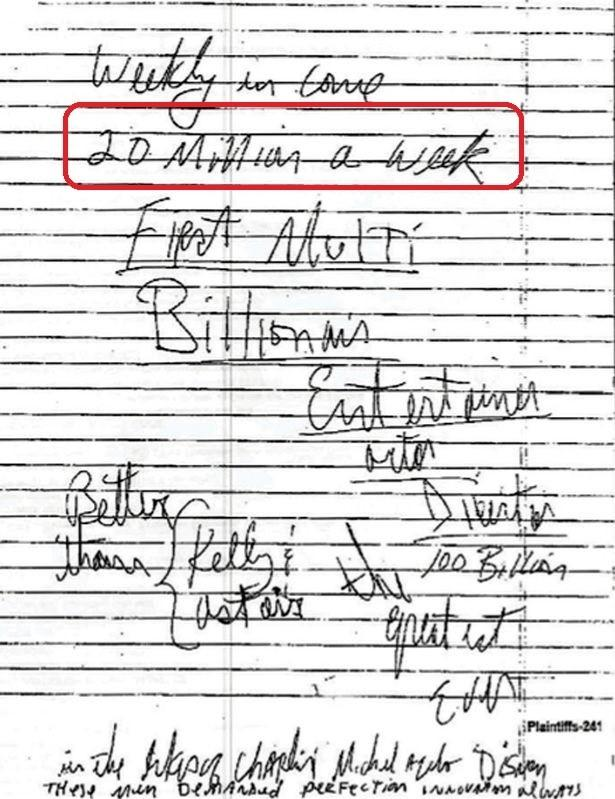 Weekly in come
20 Million a week
First Multi
Billionair
Entertainer
actor
Director
Better
than
Kelly &
astair
the
100 Billion
greatest
ever
Plaintiffs-241
in the Chaplin Michel Disney
These men Demanded perfection innovation always